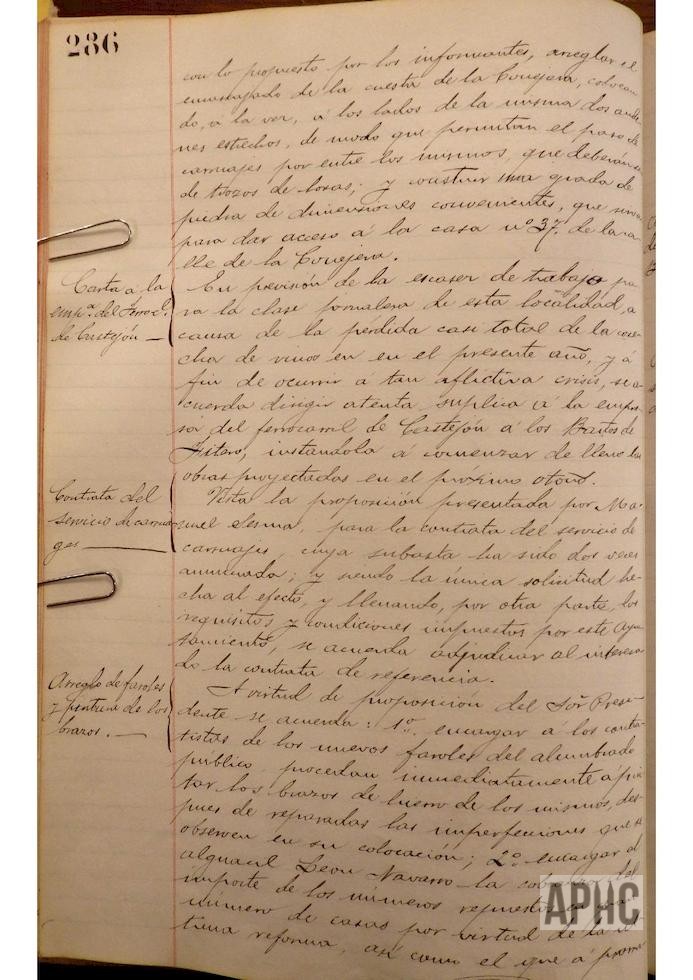 286
con lo propuesto por los informantes, arreglar el
encascajado de la cuesta de la Conejera, colocan
do, a la vez, á los lados de la misma dos ande
nes estrechos, de modo que permitan el paso de
carruajes por entre los mismos, que deberán se
de trozos de losas; y construir una grada de
piedra de dimensiones convenientes, que sirva
para dar acceso á la casa nº 37. de la ca
lle de la Conejera.
Carta á la
emp.ª del Ferroc.l
de Castejón —
En previsión de la escasez de trabajo pa
ra la clase jornalera de esta localidad, a
causa de la pérdida casi total de la cose
cha de vinos en en el presente año, y á
fin de ocurrir á tan aflictiva crisis, se a
cuerda dirigir atenta suplica á la empre
sa del ferrocarril de Castejón á los Baños de
Fitero, instandola à comenzar de lleno las
obras proyectadas en el próximo otoño.
Contrata del
servicio de carrua
ges —
Vista la proposición presentada por Ma
nuel Lesma, para la contrata del servicio de
carruajes, cuya subasta ha sido dos veces
anunciada; y siendo la única solicitud he
cha al efecto, y llenando, por otra parte, los
requisitos y condiciones impuestos por este Ayun
tamiento, se acuerda adjudicar al interesa
do la contrata de referencia.
Arreglo de faroles
y pintura de los
brazos. —
A virtud de proposición del Sor Presi
dente se acuerda: 1º. encargar á los contra
tistas de los nuevos faroles del alumbrado
público procedan inmediatamente á pin
tar los brazos de hierro de los mismos, des
pues de reparadas las imperfecciones que se
observen en su colocación; 2º. encargar al
alguacil Leon Navarro la del
importe de los números repuestos
número de casas por virtud de la úl
tima reforma, así como el que á
APHC